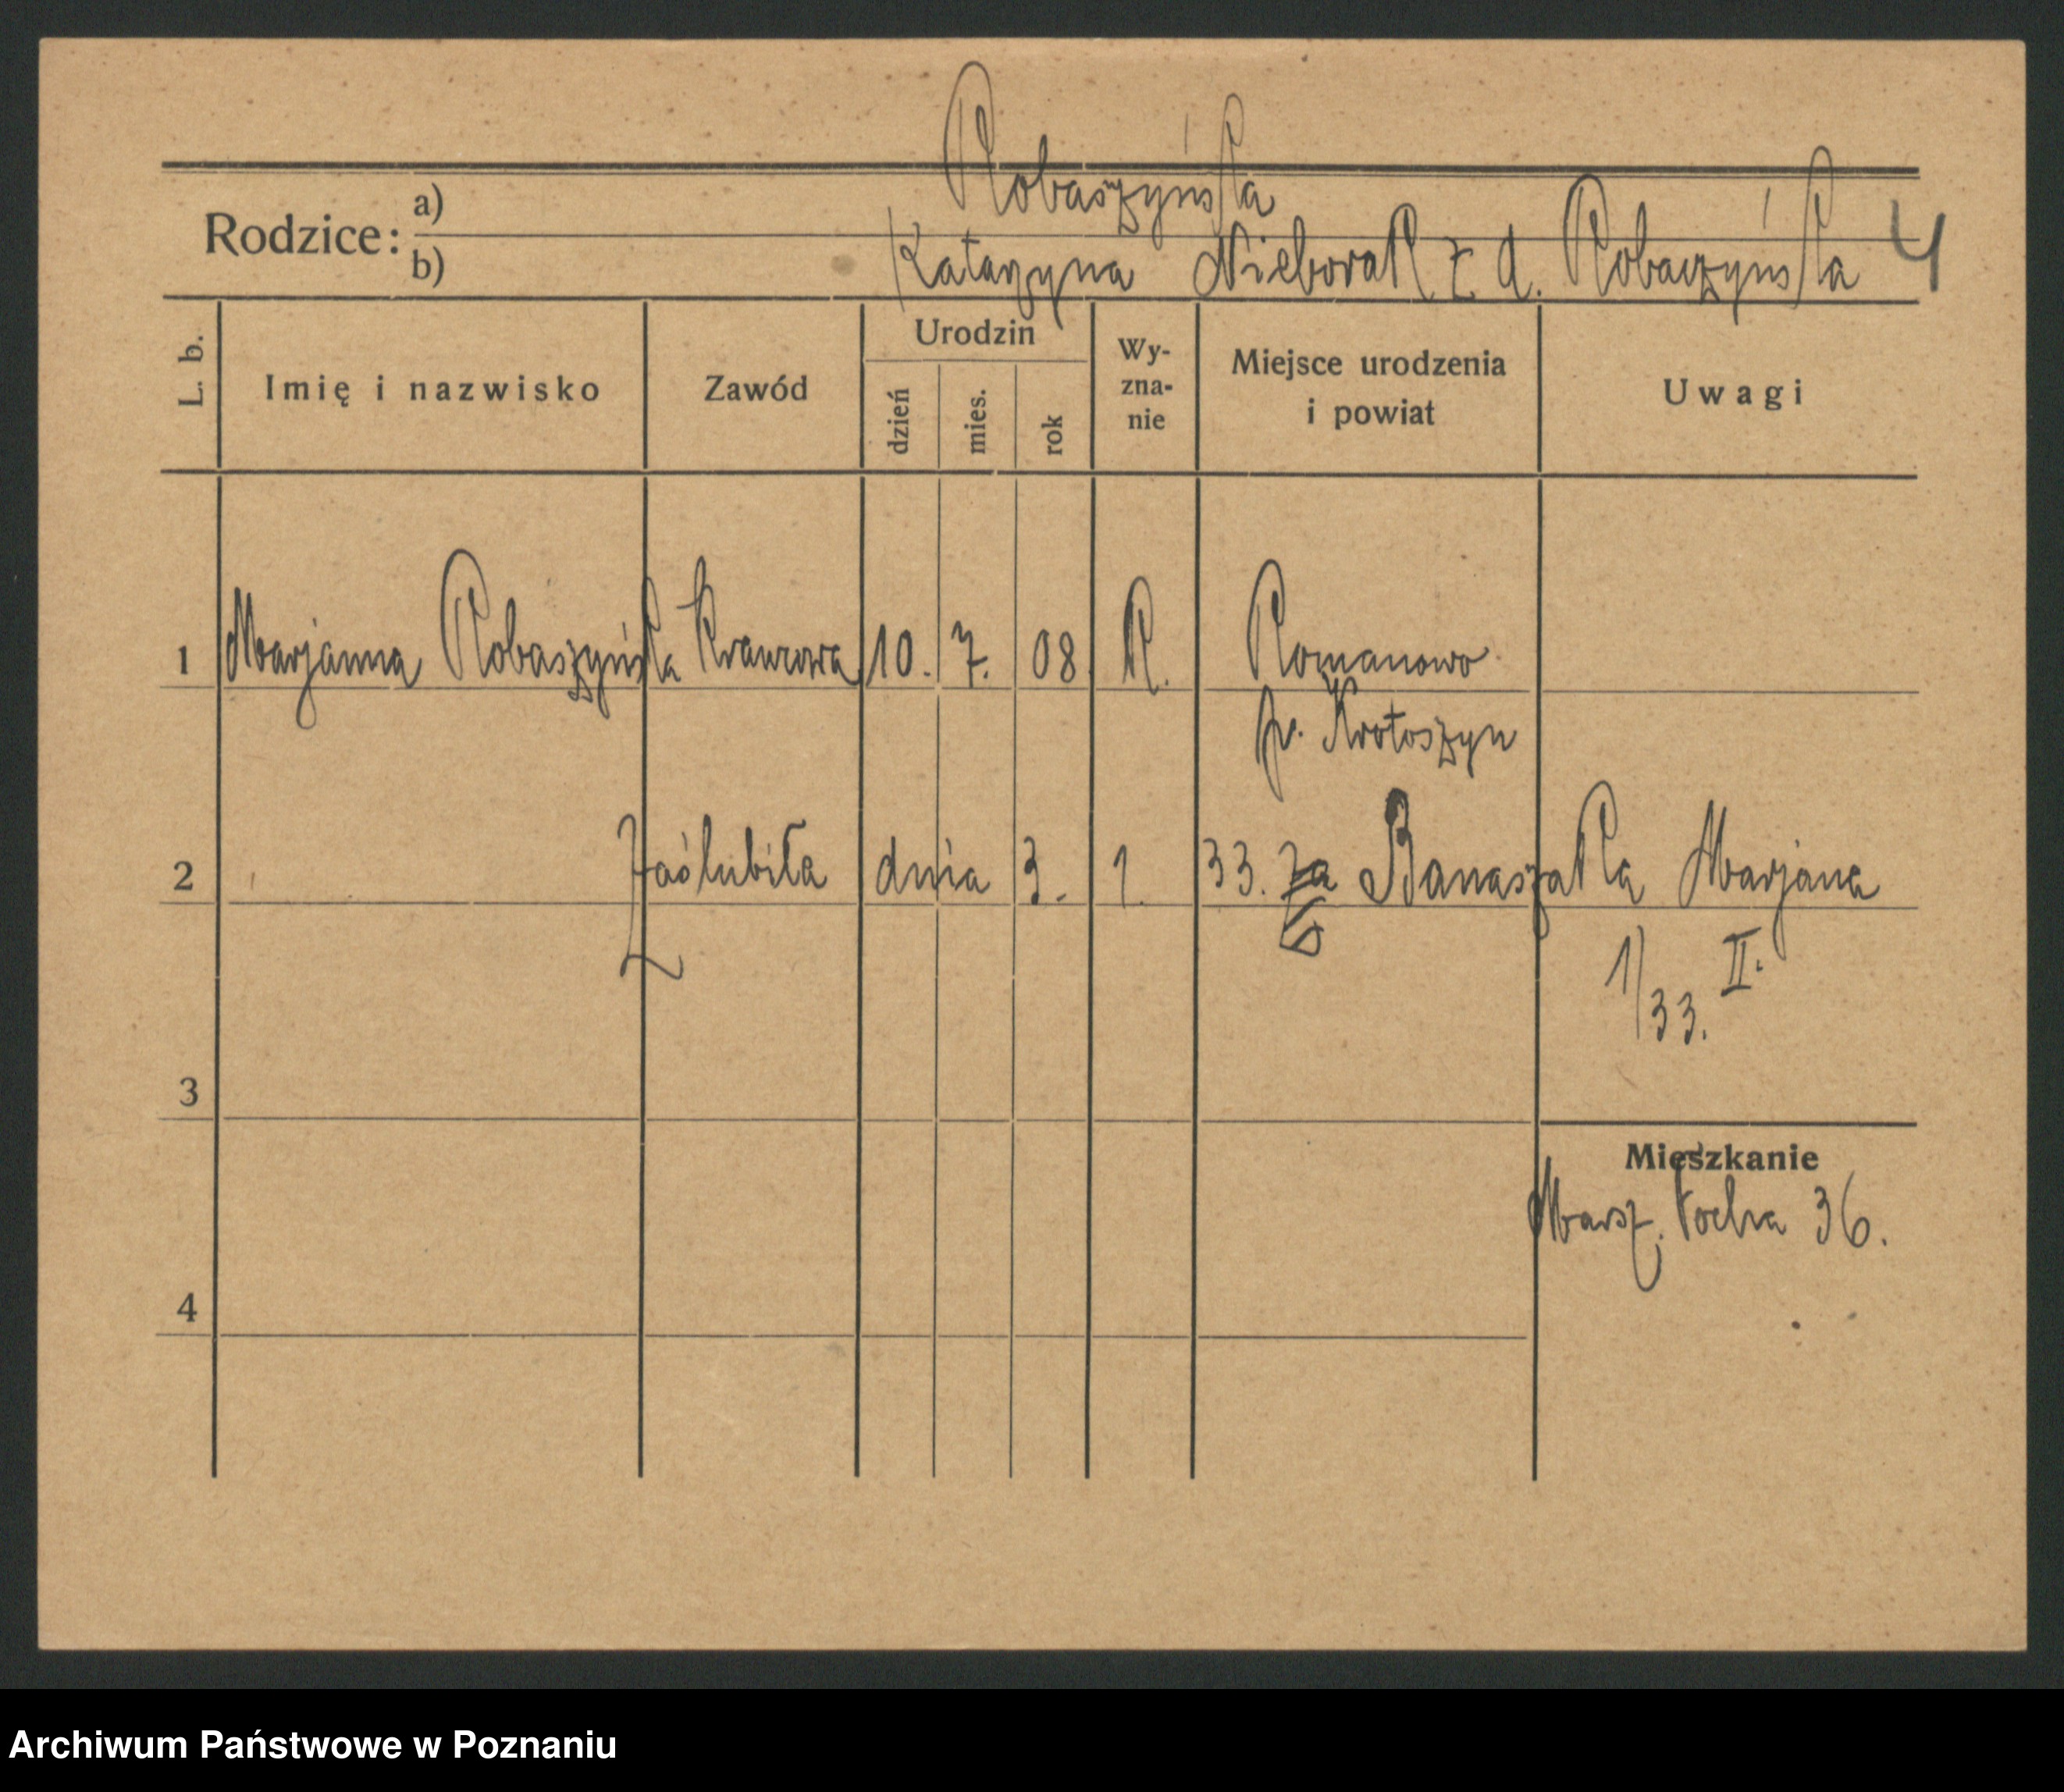 Robaszyńska
Rodzice: a)
b) Katarzyna Nieborak z d. Robaszyńska 4
L. b. Imię i nazwisko Zawód Urodzin dzień mies. rok Wyznanie Miejsce urodzenia i powiat Uwagi
1 Marjanna Robaszyńska Krawcowa 10. 7. 08 R. Romanowo
p. Krotoszyn
2 Zaślubiła dnia 3. 1. 33. za Banaszaka Marjana
1/33. II.
3
Mieszkanie
Marsz. Focha 36.
4
Archiwum Państwowe w Poznaniu